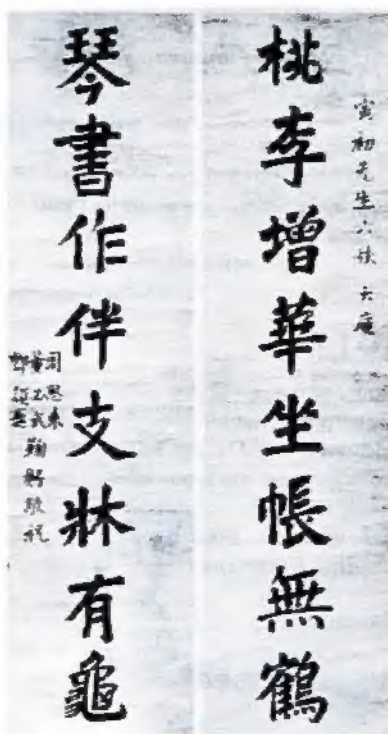 寅初先生六秩 大慶
桃李增華坐帳無鶴
琴書作伴支牀有龜
周恩來
董必武
鄧穎超
鞠躬敬祝